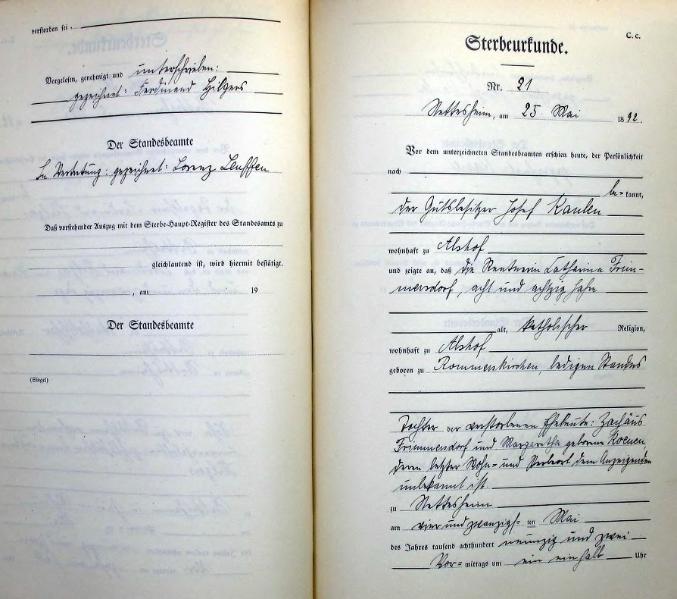 verstorben sei
Vorgelesen, genehmigt und unterschrieben:
gezeichnet: Ferdinand Hilgers
Der Standesbeamte
In Vertretung: gezeichnet: Lorenz
Daß vorstehender Auszug mit dem Sterbe-Haupt-Register des Standesamts zu
gleichlautend ist, wird hiermit bestätigt.
, am 19
Der Standesbeamte
(Siegel)
C. c.
Sterbeurkunde.
Nr. 21
Nettesheim, am 25 Mai 1892.
Vor dem unterzeichneten Standesbeamten erschien heute, der Persönlichkeit
nach
be-kannt,
der Gutsbesitzer Josef Kaulen
wohnhaft zu Alshof
und zeigte an, daß die Rentnerin Catharina Frim-
mersdorf, acht und achtzig Jahre
alt, katholischer Religion,
wohnhaft zu Alshof
geboren zu Rommerskirchen, ledigen Standes
Tochter der verstorbenen Eheleute: Zachäus
Frimmersdorf und Margaretha geborene Koenen
deren letzter Wohn- und Sterbeort dem Anzeigenden
unbekannt ist
zu Nettesheim
am vier und zwanzigsten Mai
des Jahres tausend achthundert neunzig und zwei
Vor-mittags um ein einhalb Uhr